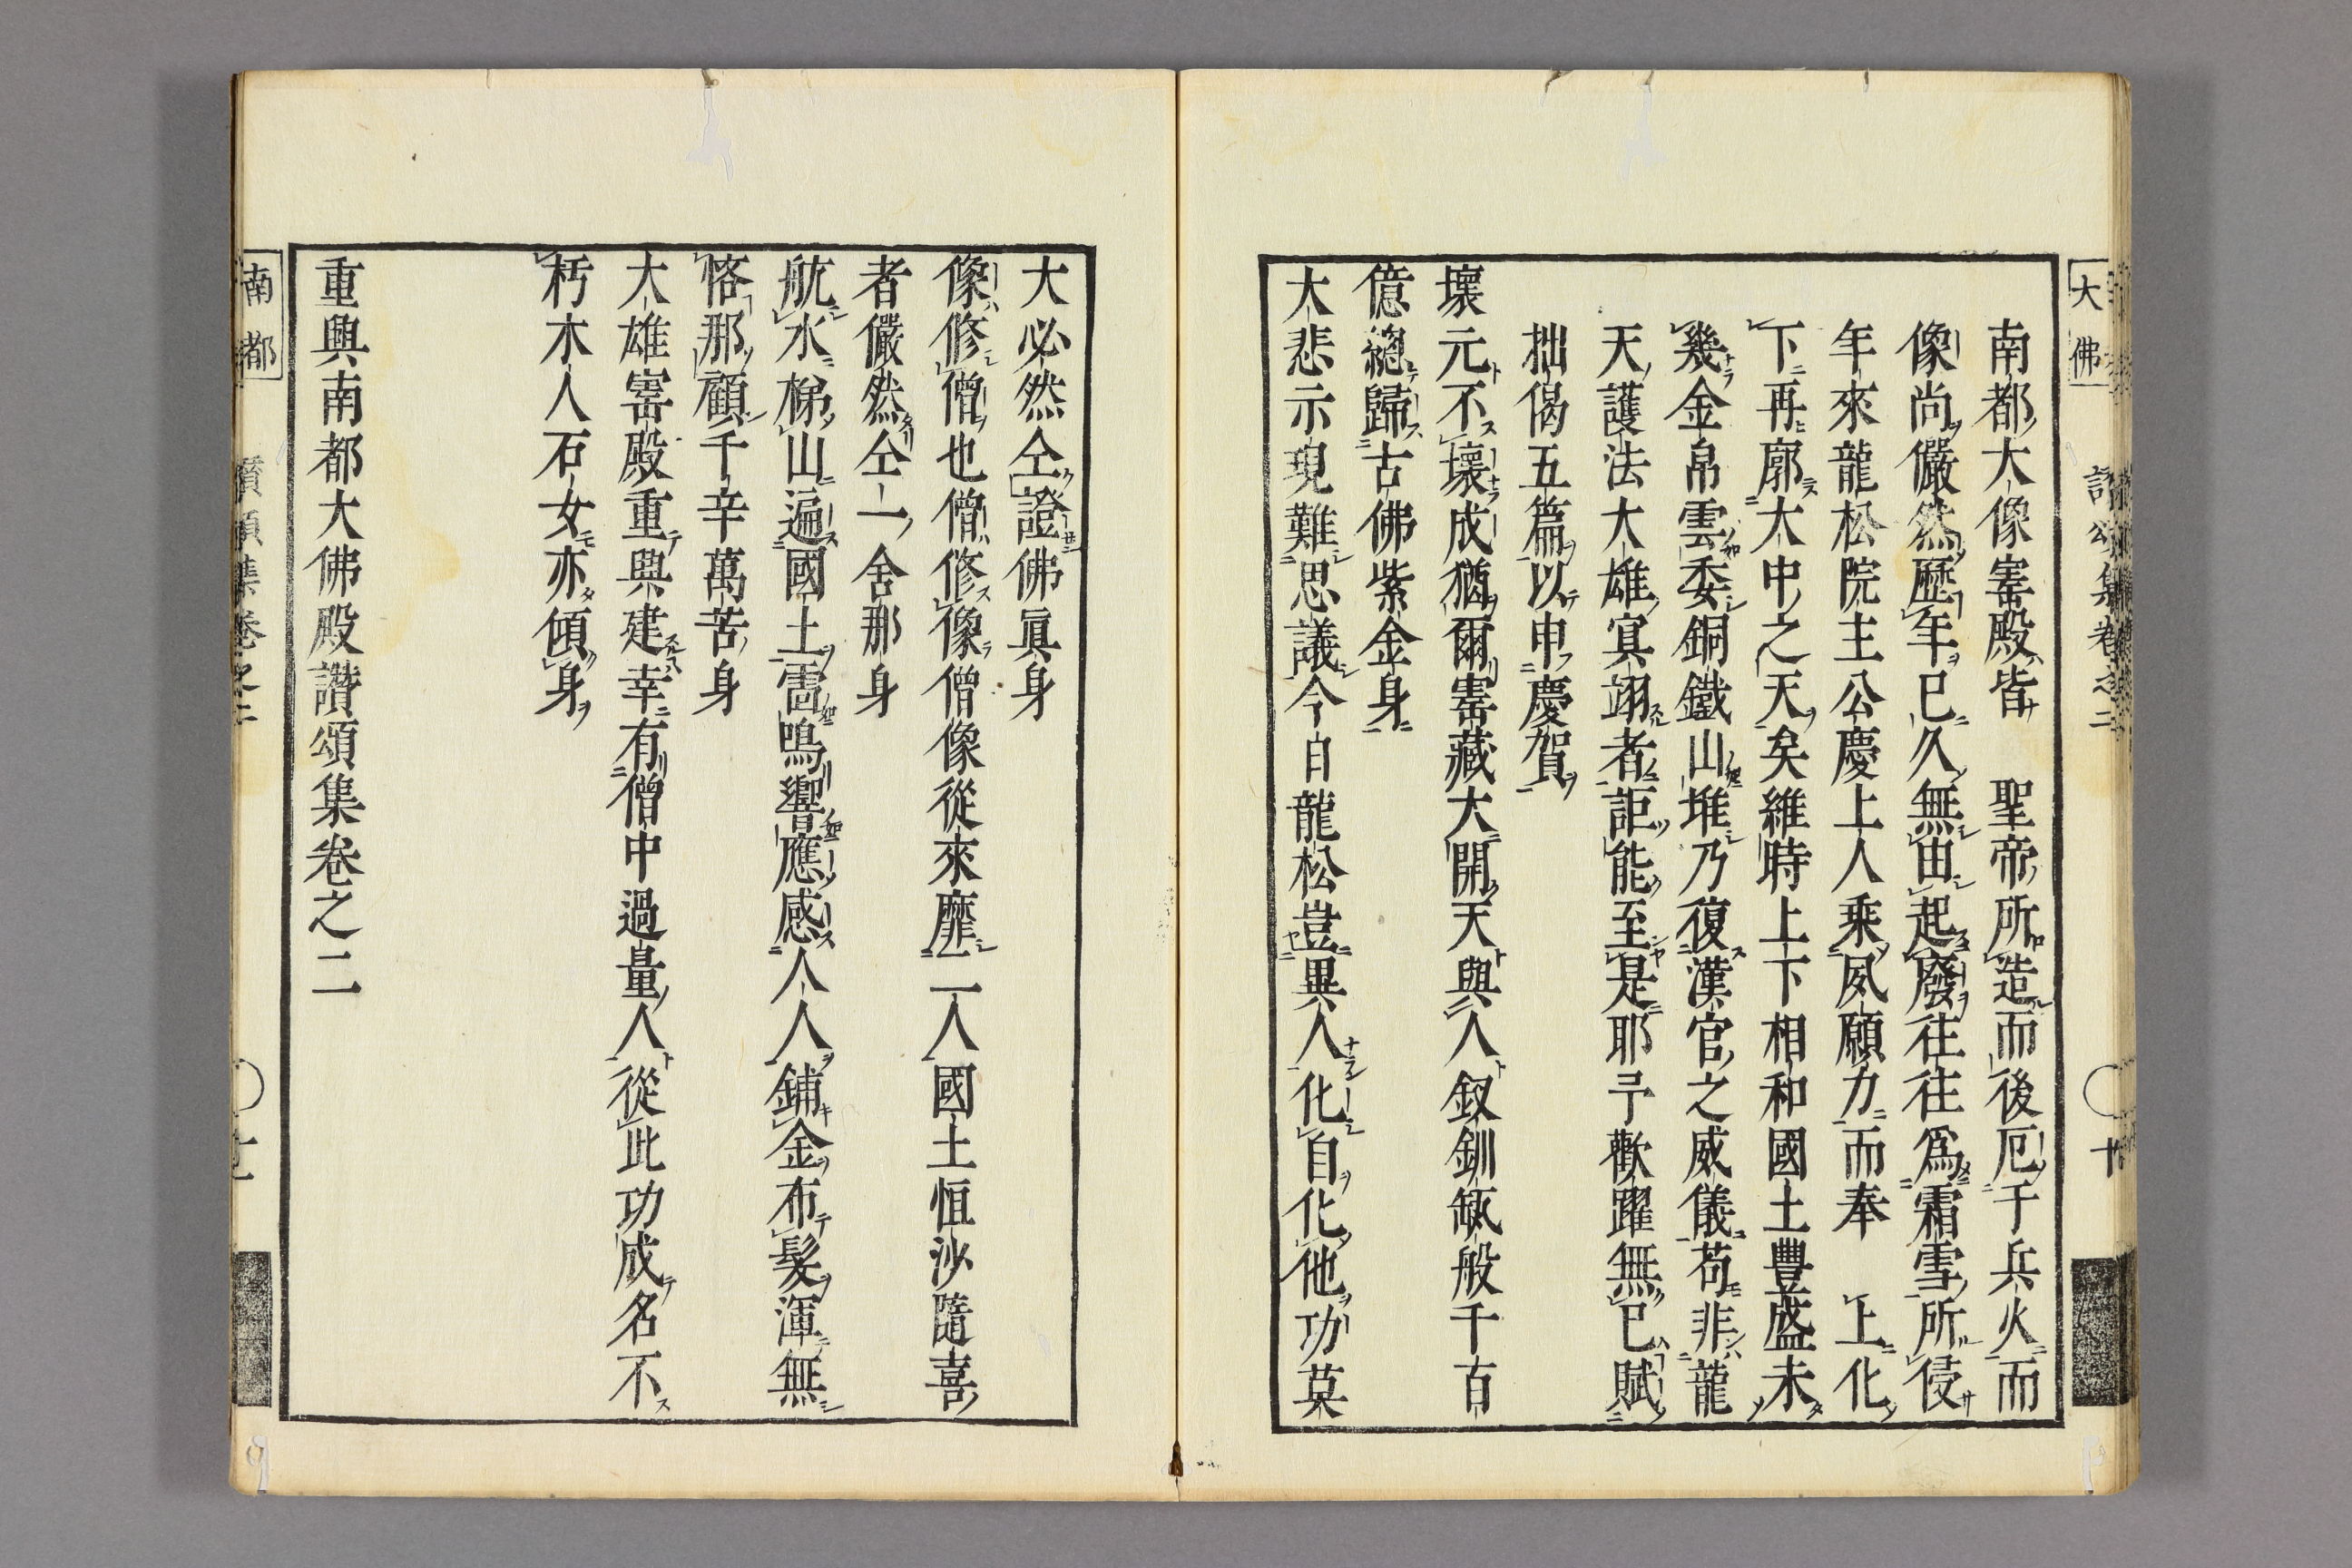 大佛
南都大像寚殿皆　聖帝所造而後厄于兵火而
像尚儼然歷年已久無由起廢往往為霜雪所侵
年來龍松院主公慶上人乘夙願力而奉　上化
下再廓大中之天矣維時上下相和國土豐盛未
幾金帛雲委銅鐵山堆乃復漢官之威儀苟非龍
天護法大雄冥翊者詎能至是耶予歡躍無已賦
拙偈五篇以申慶賀
壞元不壞成猶爾寚藏大開天與人釵釧瓴般千百
億總歸古佛紫金身
大悲示現難思議今日龍松豈異人化自化他功莫
大必然仝證佛眞身
像修僧也僧修像僧像從來靡二人國土恒沙隨喜
者儼然仝一舍那身
航水梯山遍國土雷鳴響應感人人鋪金布髮渾無
悋那顧千辛萬苦身
大雄寚殿重興建幸有僧中過量人從此功成名不
朽木人石女亦傾身
重興南都大佛殿讚頌集卷之二
南都